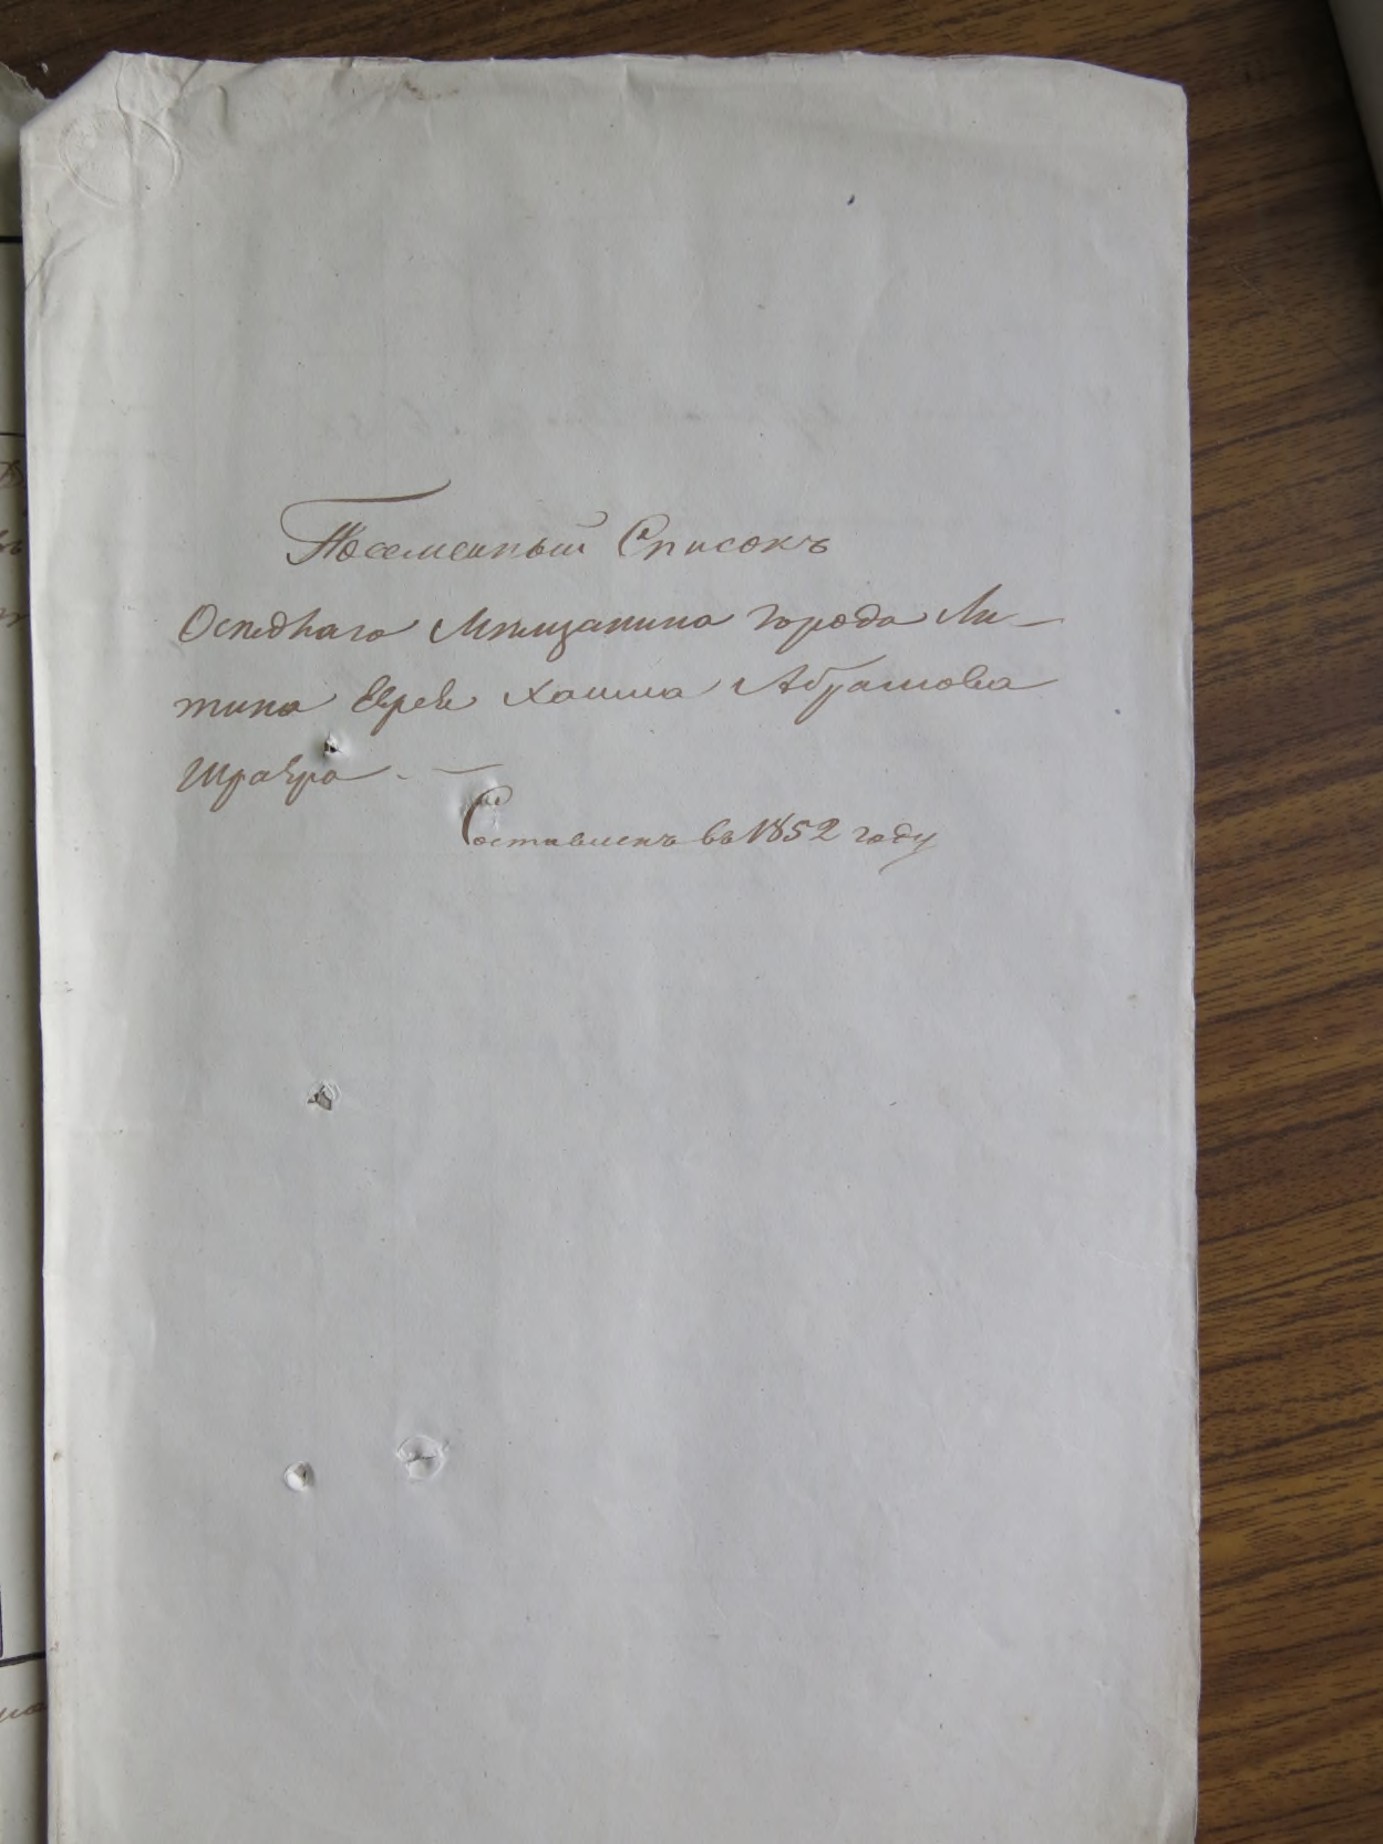 Посемейный Списокъ
Оседлаго Мѣщанина города Ли-
тина Еврея Хаима Абрамова
Шрагра. —
Составленъ въ 1852 году